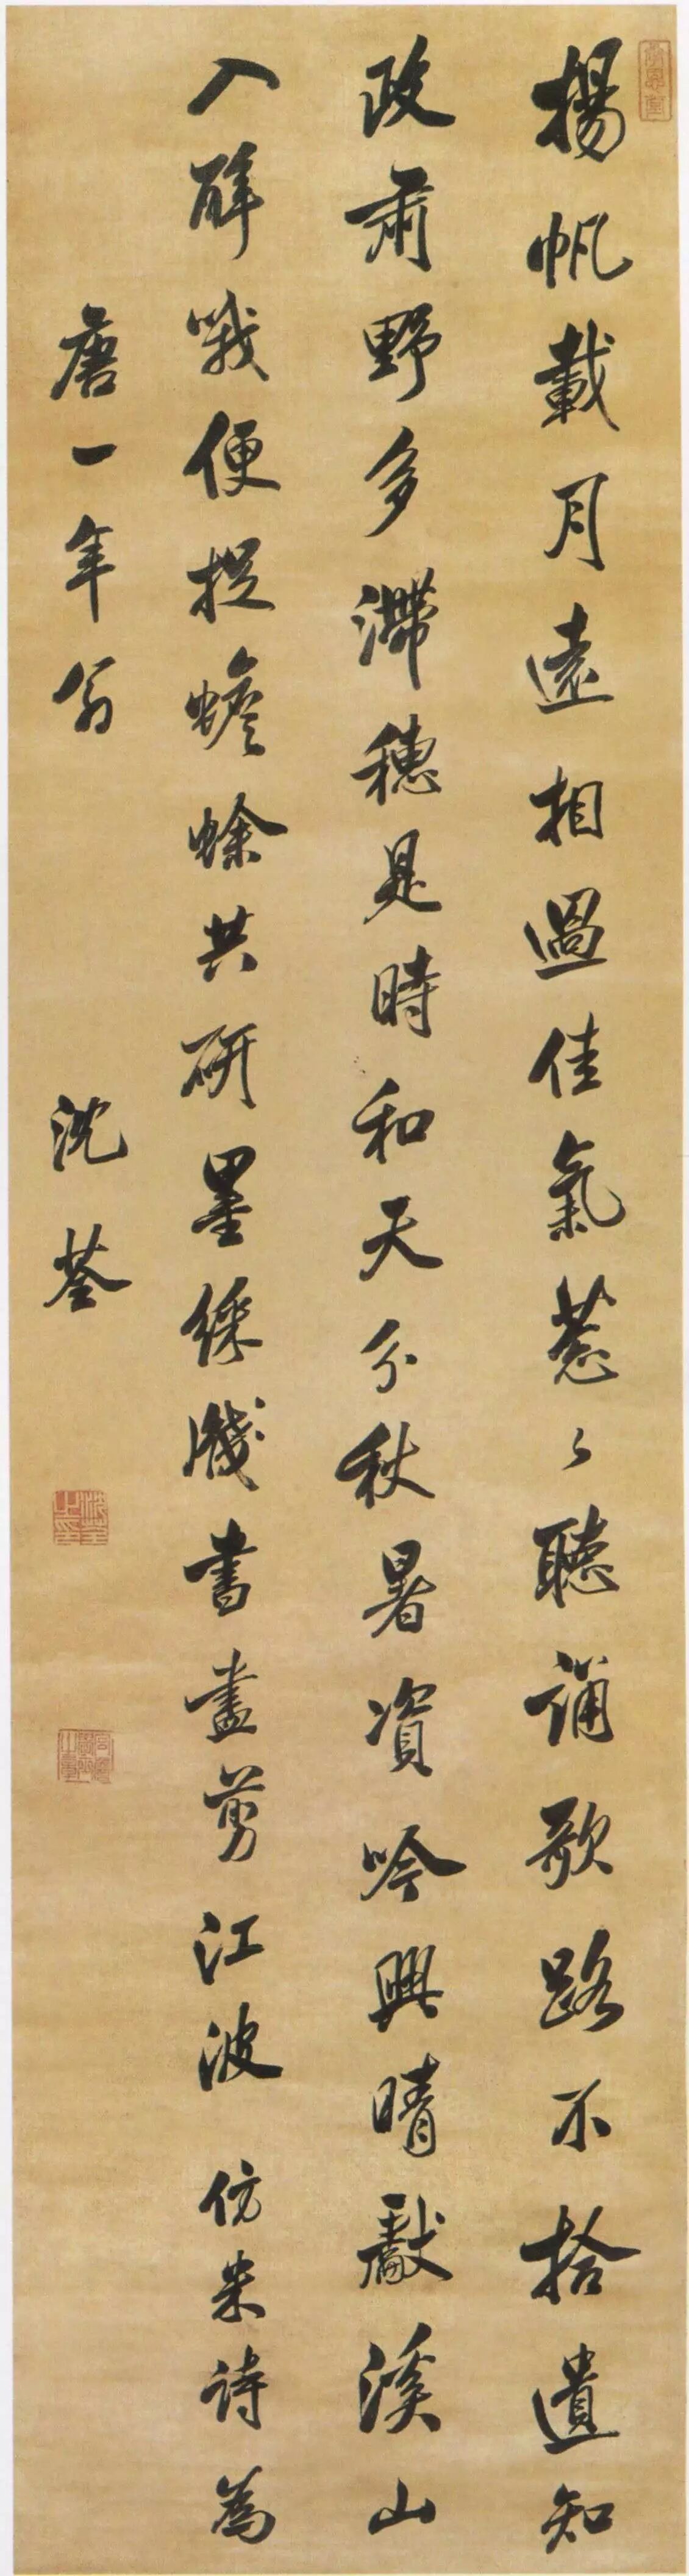 揚帆載月遠相過佳氣葱々聽誦歌路不拾遺知
政肅野多滯穗是時和天分秋暑資吟興晴獻溪山
入醉哦便捉蟾蜍共研墨綵牋書盡剪江波 仿米詩為
唐一年翁
沈荃
沈荃之印